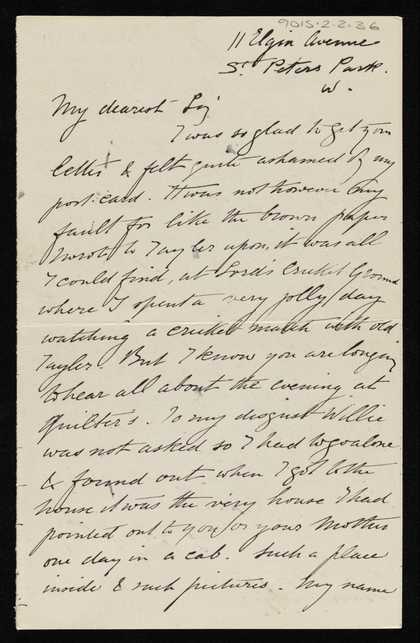 9015-2-2-36
11 Elgin Avenue
St Peters Park.
W.
My dearest
I was so glad to get your
letter & felt quite ashamed of my
post card. It was not however my
fault for like the brown paper
I wrote to Tayler upon, it was all
I could find, at Lord's Cricket Ground
where I spent a very jolly day
watching a cricket match with old
Tayler. But I know you are longing
to hear all about the evening at
Quilter's. To my disgust Willie
was not asked so I had to go alone
& found out when I got to the
house it was the very house I had
pointed out to you or your Mother
one day in a cab. Such a place
inside & such pictures. My name